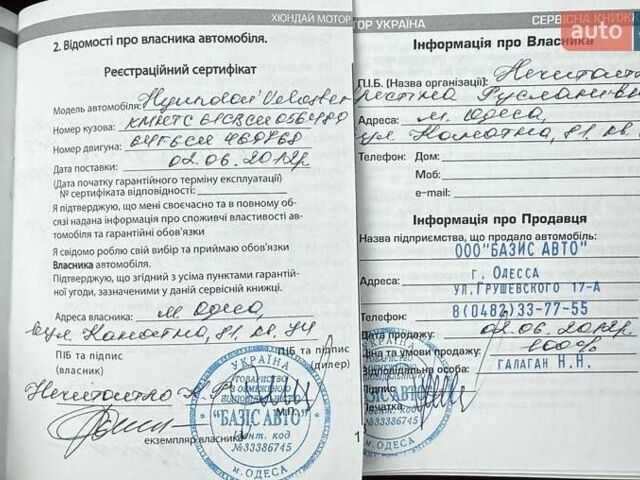 ХЮНДАЙ МОТОР
2. Відомості про власника автомобіля.
Реєстраційний сертифікат
Модель автомобіля: Hyundai Veloster
Номер кузова:
Номер двигуна:
Дата поставки: 02.06.2012р.
(Дата початку гарантійного терміну експлуатації)
№ сертифіката відповідності:
Я підтверджую, що мені своєчасно та в повному об-
язі надана інформація про споживчі властивості ав-
томобіля та гарантійні обов'язки
Я свідомо роблю свій вибір та приймаю обов'язки
Власника автомобіля.
Підтверджую, що згідний з усіма пунктами гарантій-
ної угоди, зазначеними у даній сервісній книжці.
Адреса власника: м Одеса,
вул. Канатна, 81 кв. 44
ПІБ та підпис
(власник)
ПІБ та підпис
(дилер)
М.П.
екземпляр власника
1
УКРАЇНА
ТОВАРИСТВО
З ОБМЕЖЕНОЮ
"БАЗІС АВТО"
Ідент. код
№33386745
м. ОДЕСА
ТОР УКРАЇНА
СЕРВІСНА КНИЖК
auto
Інформація про Власника
П.І.Б. (Назва організації):
Русланівн
Адреса: м. Одеса,
вул Канатна, 81 кв.
Телефон: Дом:
Моб:
e-mail:
Інформація про Продавця
Назва підприємства, що продало автомобіль:
ООО "БАЗИС АВТО"
Адреса: г. ОДЕССА
УЛ.ГРУШЕВСКОГО 17-А
Телефон: 8(0482)33-77-55
Дата продажу: 02.06.2012р.
Ціна та умови продажу: 100%
Відповідальна особа: ГАЛАГАН Н.Н.
Підпис
Печатка
УКРАЇНА
БАЗІС АВТО"
Ідент. код
№33386745
м. ОДЕСА